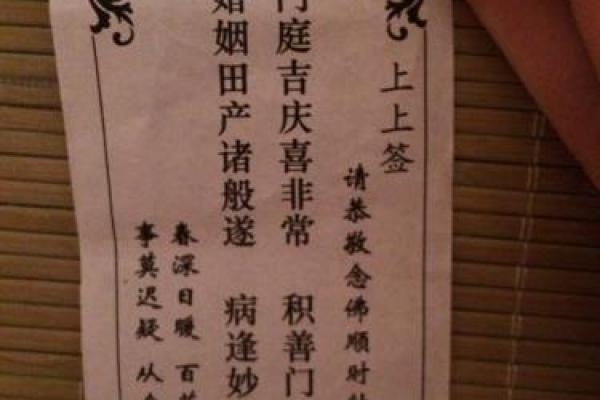 上上签
请恭敬念佛顺时
门庭吉庆喜非常 积善门
婚姻田产诸般遂 病逢妙
春深日暖 百花
事莫迟疑 从